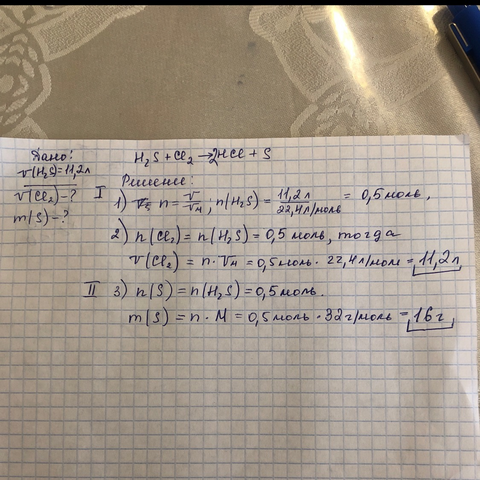 Дано:
V(H₂S)=11,2л
V(Cl₂)-?
m(S)-?
H₂S + Cl₂ → 2HCl + S
Решение:
I 1) n = V/Vм ; n(H₂S) = 11,2л/22,4л/моль = 0,5 моль,
2) n(Cl₂) = n(H₂S) = 0,5 моль, тогда
V(Cl₂) = n · Vм = 0,5 моль · 22,4 л/моль = 11,2 л
II 3) n(S) = n(H₂S) = 0,5 моль.
m(S) = n · M = 0,5 моль · 32 г/моль = 16 г